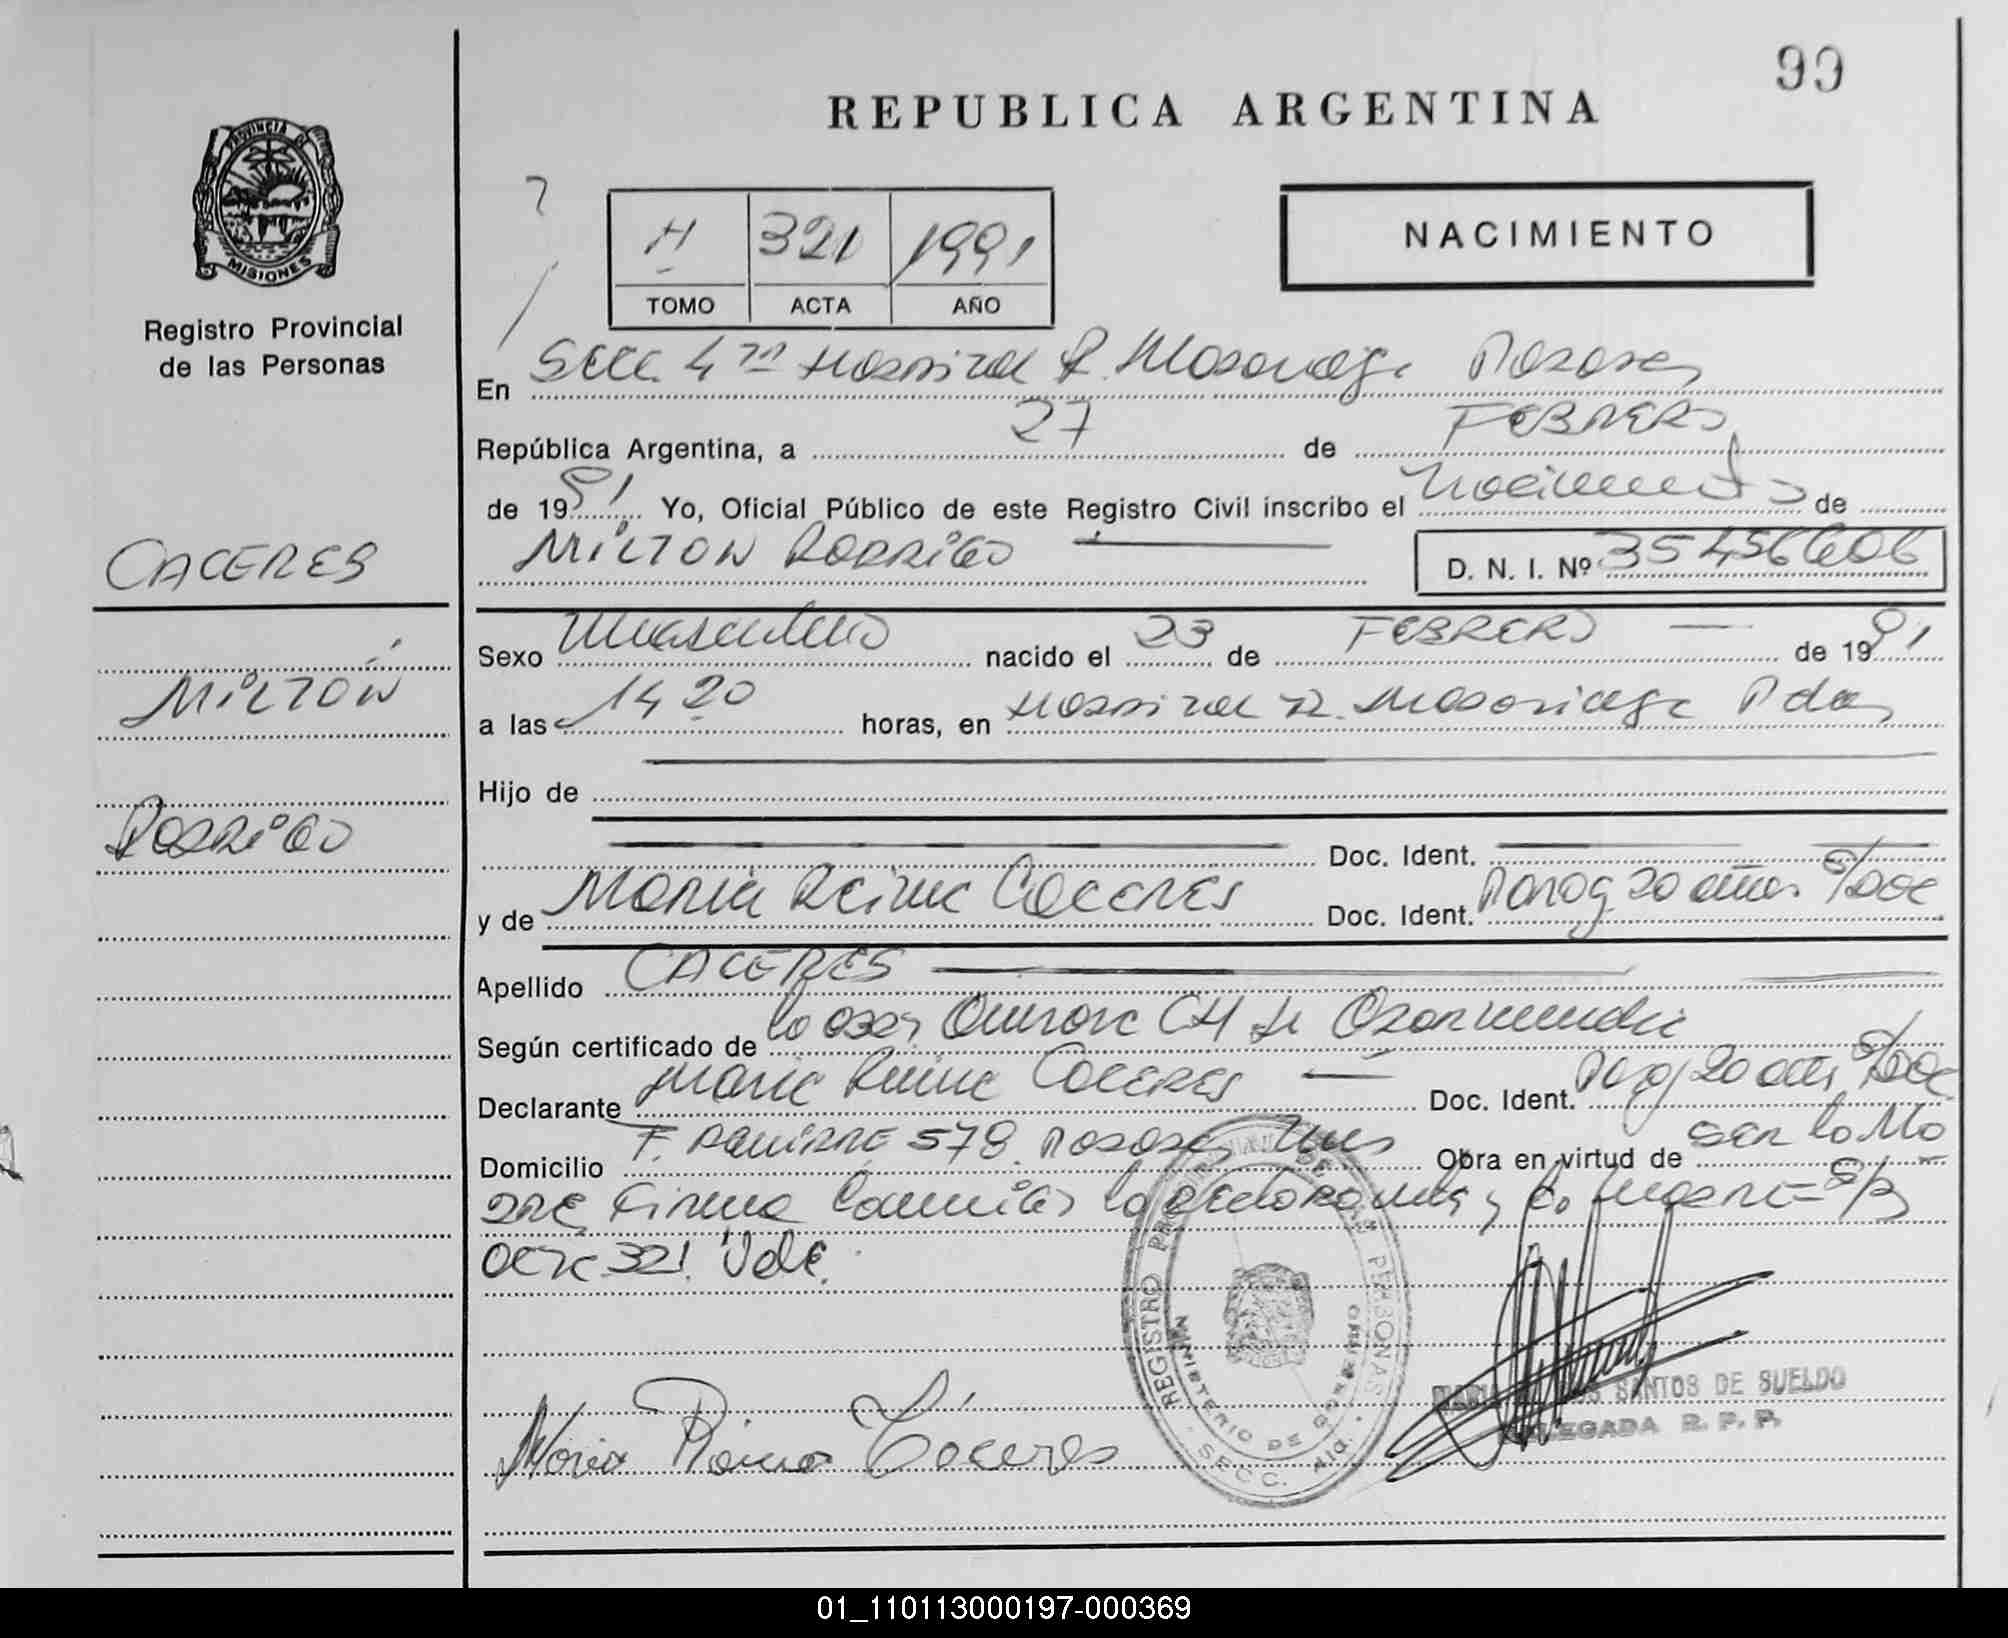 99
REPUBLICA ARGENTINA
PROVINCIA DE
MISIONES
Registro Provincial
de las Personas
H 321 1991
TOMO ACTA AÑO
NACIMIENTO
En Secc. 4ta Hospital R. Madariaga Posadas
República Argentina, a 27 de FEBRERO
de 1991 Yo, Oficial Público de este Registro Civil inscribo el Nacimiento de
MILTON RODRIGO D. N. I. Nº 35456606
CACERES
MILTON
RODRIGO
Sexo Masculino nacido el 23 de FEBRERO de 1991
a las 14 20 horas, en Hospital R. Madariaga Pdas
Hijo de
Doc. Ident.
y de Maria Reina CACERES Doc. Ident. Parag 20 años S/DOC
Apellido CACERES
Según certificado de la obst
Declarante Maria Reina CACERES Doc. Ident. Parg 20 años S/DOC
Domicilio F. AGUIRRE 578 Posadas Mnes Obra en virtud de ser la Ma
dre Firma Conmigo la declarante S/B
Acta 321. Vale.
REGISTRO PROVINCIAL DE LAS PERSONAS
MINISTERIO DE GOBIERNO
SECC.
Maria Reina Cáceres
MARIA SANTOS DE SUELDO
DELEGADA R. P. P.
01_110113000197-000369